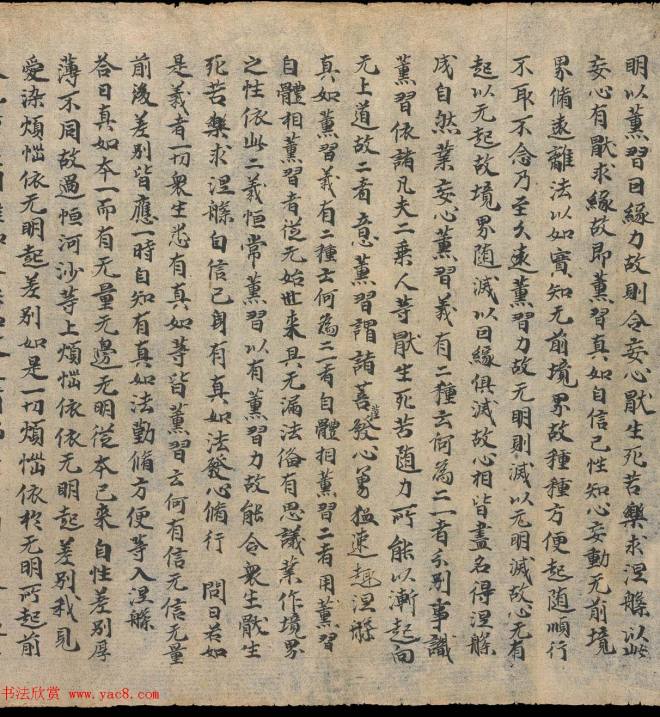 明以薰習因緣力故則令妄心猒生死苦樂求涅槃以此
妄心有猒求緣故即薰習真如自信己性知心妄動无前境
界脩遠離法以如實知无前境界故種種方便起随順行
不取不念乃至久遠薰習力故无明則滅以无明滅故心无有
起以无起故境界随滅以因緣俱滅故心相皆盡名得涅槃
成自然業妄心薰習義有二種云何為二一者分別事識
薰習依諸凡夫二乘人等猒生死苦随力所能以漸起向
无上道故二者意薰習謂諸菩薩發心勇猛速趣涅槃
真如薰習義有二種云何為二一者自體相薰習二者用薰習
自體相薰習者從无始世来具无漏法俻有思議業作境界
之性依此二義恒常薰習以有薰習力故能令衆生猒生
死苦樂求涅槃自信己身有真如法發心脩行 問曰若如
是義者一切衆生悉有真如等皆薰習云何有信无信无量
前後差別皆應一時自知有真如法勤脩方便等入涅槃
荅曰真如本一而有无量无邊无明從本已来自性差別厚
薄不同故過恒河沙等上煩惱依依无明起差別我見
愛染煩惱依无明起差別如是一切煩惱依於无明所起前
书法欣赏 www.yac8.com